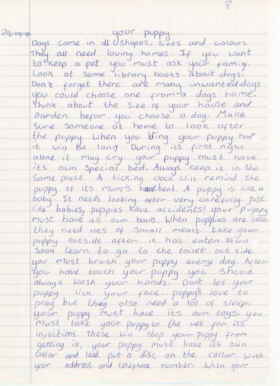 your puppy
Dogs come in all shapes, sizes and colours
They all need loving homes. If you want
to keep a pet you must ask your family.
Look at some library books about dogs.
Don't forget there are many unwanted dogs
you could choose one from a dogs home.
Think about the size of your house and
garden befor you choose a dog. Make
sure someone at home to look after
the puppy. When you bring your puppy home
it will be During its first night
alone it may cry your puppy must have
its own special bed. Always keep it in the
same place. A ticking clock will remind the
puppy of its mum's heart beat. A puppy is like a
baby. It needs looking after very carefully just
like babies, puppies have accidents! your puppy
must have its own bowl. When puppies are
they need lots of small meals. Take your
puppy outside after it has eaten. It will
soon learn to go to the toilet out side
you must brush your puppy every day. After
you have touch your puppy you should
always wash your hands. Don't let your
puppy lick your face. puppys love to
play but they also need a lot of sleep.
your puppy must have its own toys you
Must take your puppy to the vet for its
injections these will stop your puppy from
getting ill, your puppy must have its own
collar and lead put a disc on the collar with
your address and telephone number. When your